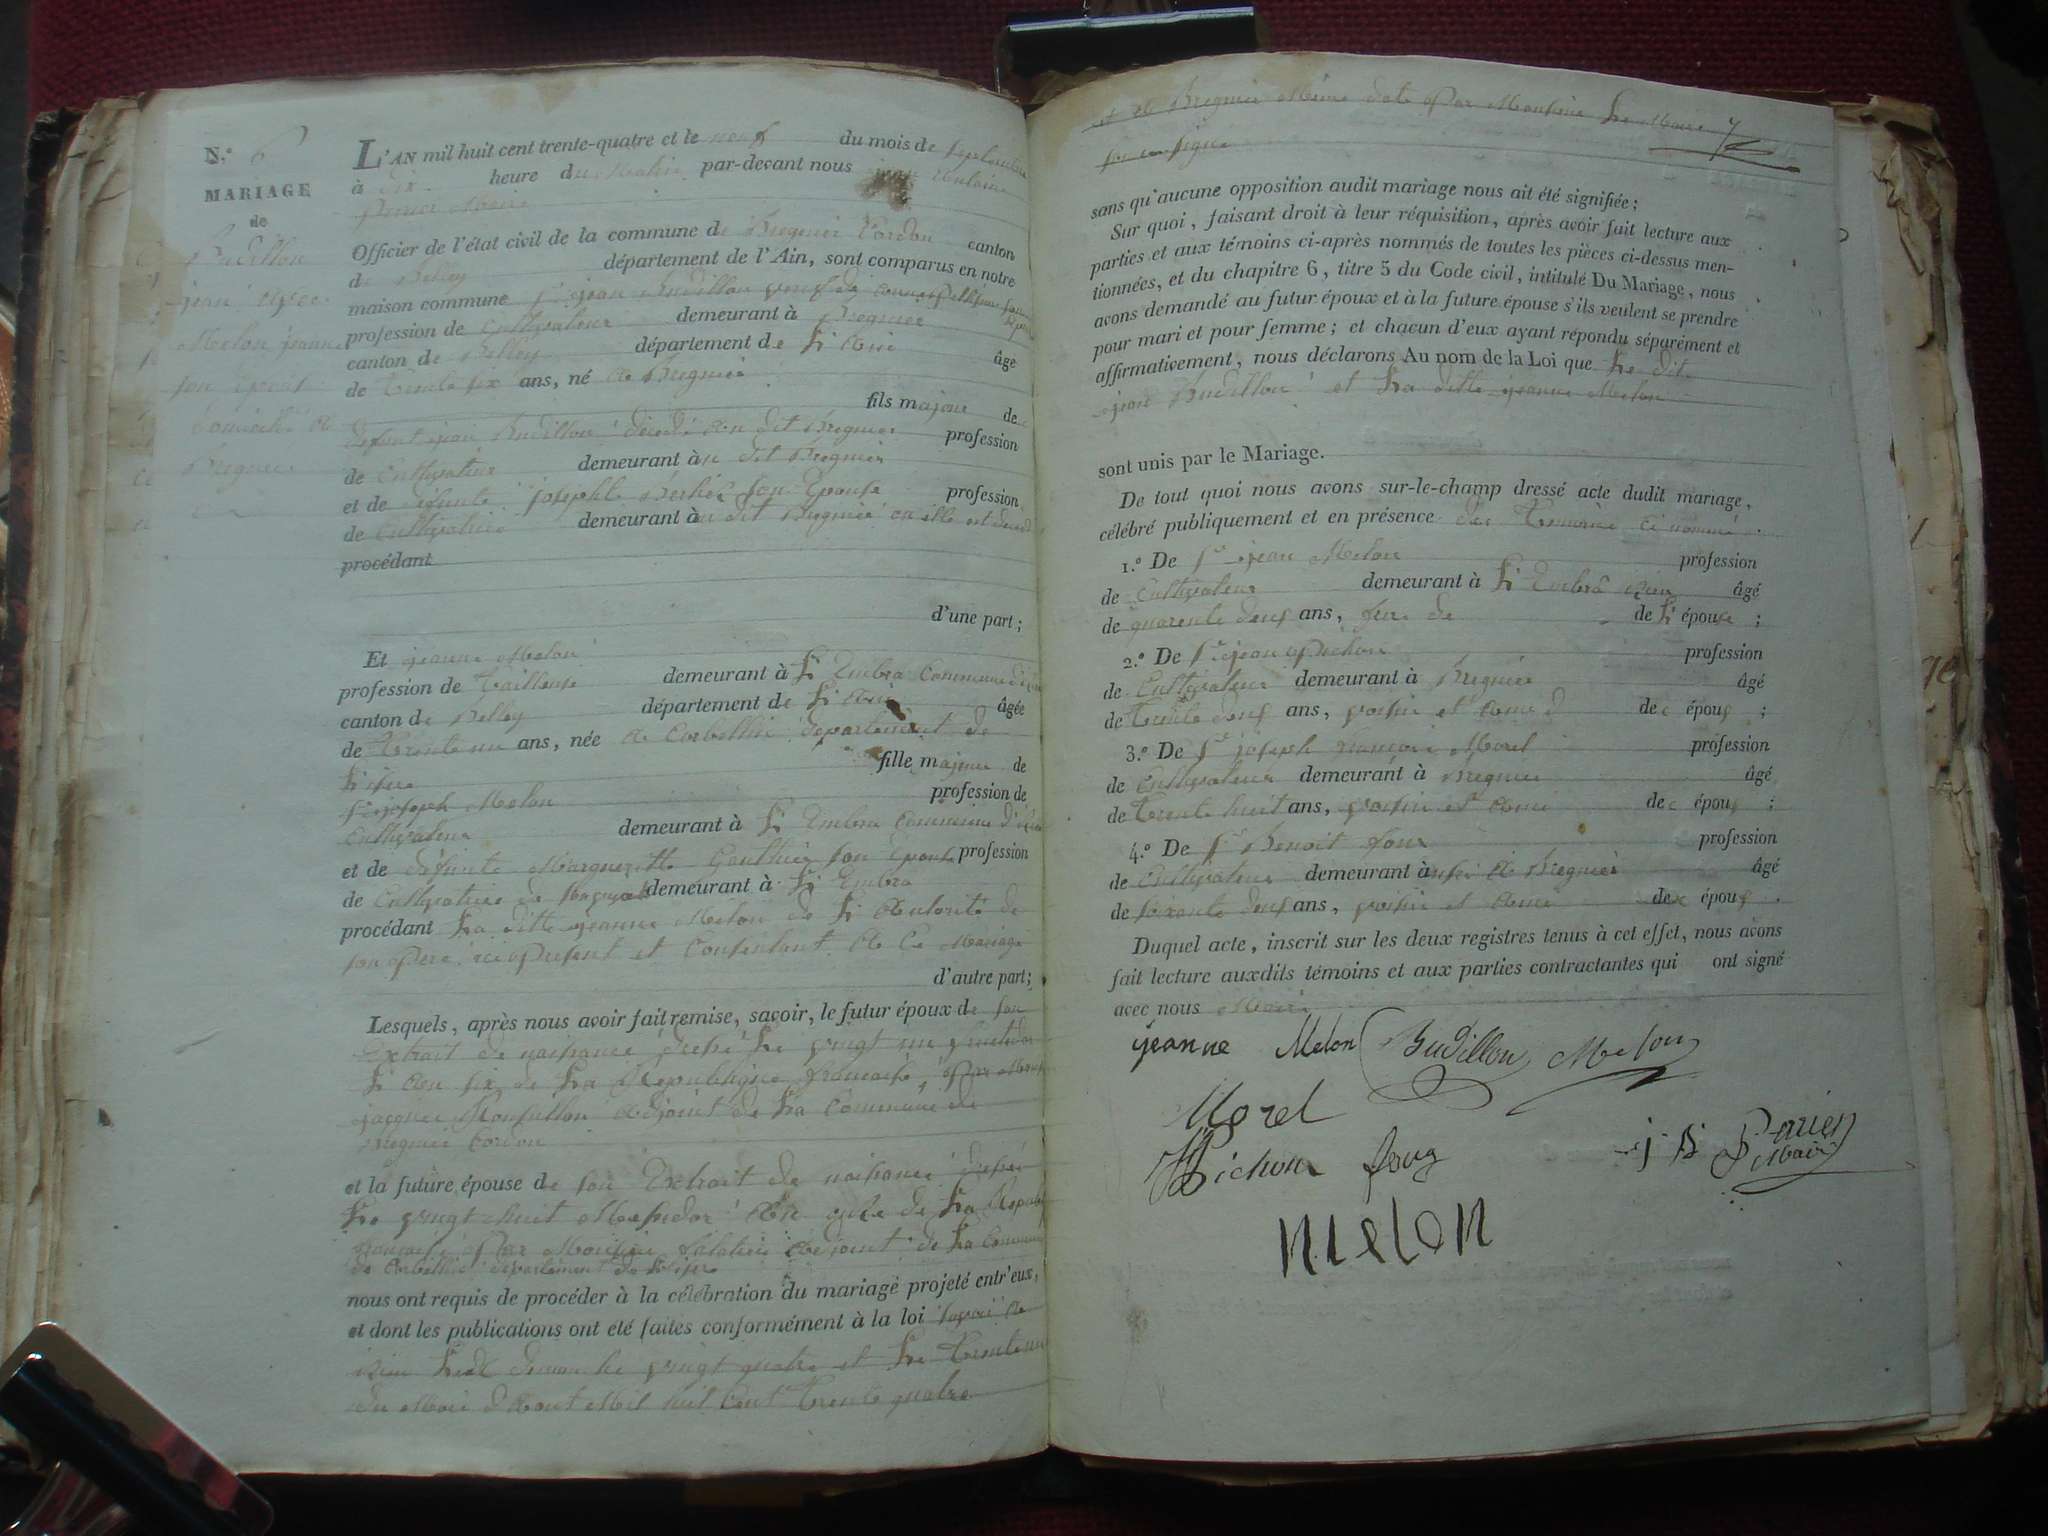 N.° 6
MARIAGE
de
Budillon
jean avec
Melon jeanne
son epouse
domicilié a
Bregnier
L'AN mil huit cent trente-quatre et le neuf du mois de septembre
à dix heure du Matin par-devant nous jean
Maire
Officier de l'état civil de la commune de Bregnier Cordon canton
de Belley département de l'Ain, sont comparus en notre
maison commune Sr jean Budillon
profession de Cultivateur demeurant à Bregnier
canton de Belley département de L'Ain âgé
de Trente six ans, né a Bregnier
fils majeur de
defunt jean Budillon décédé au dit Bregnier profession
de Cultivateur demeurant àu dit Bregnier
et de defunte josephte Berlier son Epouse profession
de Cultivatrice demeurant àu dit Bregnier ou elle est décédé
procédant
d'une part;
Et jeanne Melon
profession de Tailleuse demeurant à L'Embra Commune d'izieu
canton de Belley département de L'Ain âgée
de Trente un ans, née a Corbellin département de
L'isere fille majeure de
Sr joseph Melon profession de
Cultivateur demeurant à L'Embra Commune d'izieu
et de defunte Margueritte Gauthier son Epouse profession
de Cultivatrice demeurant à L'Embra
procédant La ditte jeanne Melon de L'Autorité de
son Pere ici Present et Consentant A Ce Mariage
d'autre part;
Lesquels, après nous avoir fait remise, savoir, le futur époux de son
Extrait de naissance La vingt un
L'An six de La Republique francaise, Par
jacques Adjoint de La Commune de
Bregnier Cordon
et la future épouse de son Extrait de naissance
Le vingt huit Messidor An onze de La Republique
francaise Par Monsieur Adjoint de La Commune
de Corbellin département de L'isere
nous ont requis de procéder à la célébration du mariage projeté entr'eux,
et dont les publications ont été faites conformément à la loi savoir a
izieu Les dimanche vingt quatre et Le Trente un
du Mois d'Aout Mil huit Cent Trente quatre
et de Bregnier Meme date Par Monsieur Le Maire
signé
sans qu'aucune opposition audit mariage nous ait été signifiée;
Sur quoi, faisant droit à leur réquisition, après avoir fait lecture aux
parties et aux témoins ci-après nommés de toutes les pièces ci-dessus men-
tionnées, et du chapitre 6, titre 5 du Code civil, intitulé Du Mariage, nous
avons demandé au futur époux et à la future épouse s'ils veulent se prendre
pour mari et pour femme; et chacun d'eux ayant répondu séparément et
affirmativement, nous déclarons Au nom de la Loi que Le dit
jean Budillon et La ditte jeanne Melon
sont unis par le Mariage.
De tout quoi nous avons sur-le-champ dressé acte dudit mariage,
célébré publiquement et en présence des Temoins ci nommé
1.° De Sr jean Melon profession
de Cultivateur demeurant à L'Embra izieu âgé
de quarente deux ans, frere de de L' épouse;
2.° De Sr jean Pichon profession
de Cultivateur demeurant à Bregnier âgé
de Trente deux ans, voisin et Ami d des époux;
3.° De Sr joseph francois Morel profession
de Cultivateur demeurant à Bregnier âgé
de Trente huit ans, voisin et Ami des époux;
4.° De Sr Benoit profession
de Cultivateur demeurant à Bregnier âgé
de soixante deux ans, voisin et Ami des époux.
Duquel acte, inscrit sur les deux registres tenus à cet effet, nous avons
fait lecture auxdits témoins et aux parties contractantes qui ont signé
avec nous Maire
jeanne Melon Budillon Melon
Morel
Pichon
Maire
melon